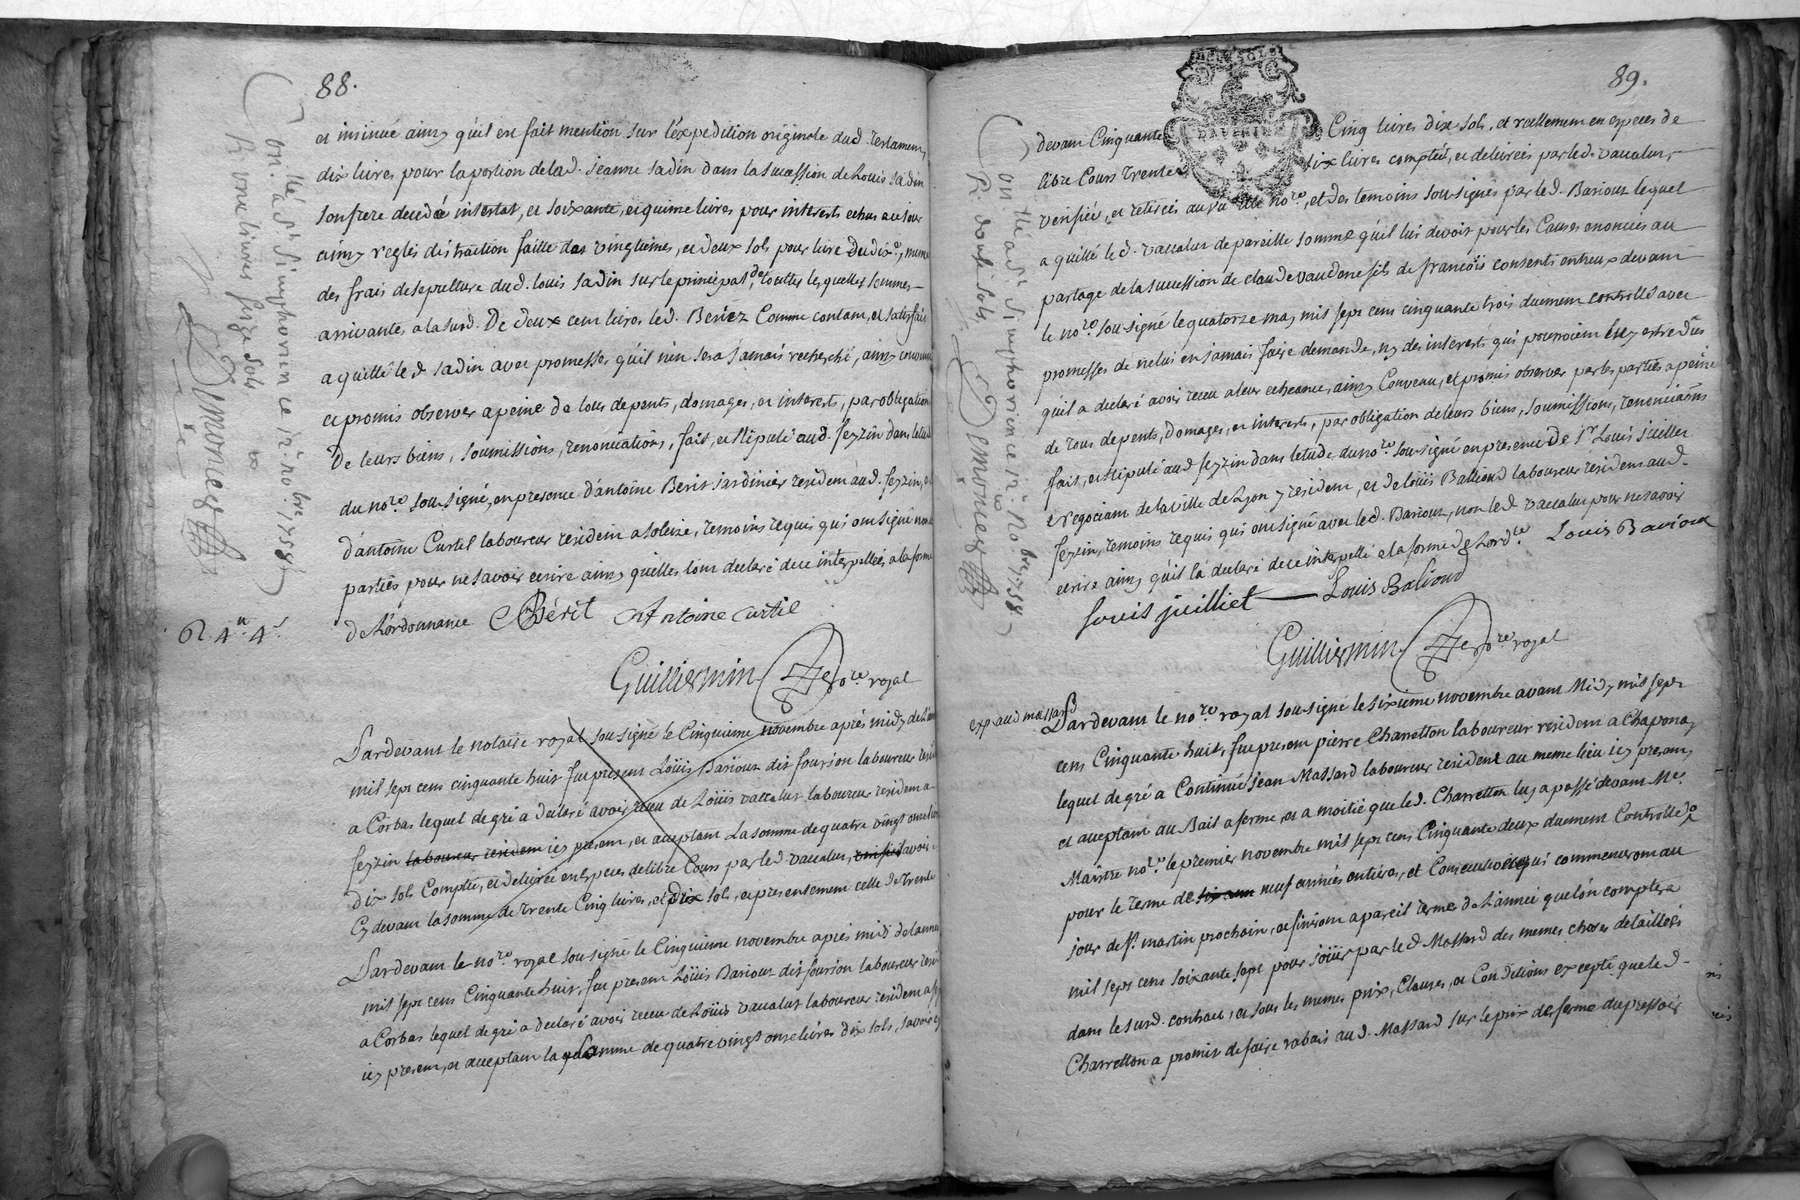 88.
et insinué ainsy qu'il en fait mention sur l'expedition originale dud. testament,
dix livres pour la portion de lad. jeanne sadin dans la succession de Louis sadin
son frere decedé intestat, et soixante, et quinze livres pour interests echus au jour
ainsy reglés distraction faitte des vingtiemes, et deux sols pour livre du dix.e, meme
des frais de sepulture dud. louis sadin sur le principal, de touttes lesquelles sommes
arrivante a la sud. De deux cent livres led. Beriez Comme contant, et satisfait
a quitté le d. sadin avec promesses qu'il n'en sera jamais recherché, ainsy convenu
et promis observer a peine de tous depents, domages, et interests, par obligation
De leurs biens, soumissions, renonciations, fait, et stipulé aud. feyzin dans l'etude
du no.re sousigné, en presence d'antoine Berit jardinier resident aud. feyzin, et
d'antoine Curtil laboureur resident a soleize, temoins requis qui ont signé non les
parties pour ne savoir ecrire ainsy qu'elles l'ont declaré de ce interpellées a la forme
de L'ordonnance Bérit Antoine curtil
Guilliermin no.re royal
Con.llé a St Simphorien ce 12.e no.bre 1758
R. 4.ll 4.s
Pardevant le notaire royal sousigné le Cinquieme novembre après midy de l'année
mil sept cens cinquante huit fut present Loüis Bariout dit foursion laboureur resident
a Corbas lequel de gré a declaré avoir receu de Loüis vaccalut laboureur resident a
feyzin laboureur resident icy present, et acceptant La somme de quatre vingt onze livres
dix sols Comptée, et delivrée en especes de libre Cours par led vaccalut, verifiée savoir
Cy devant la somme de trente Cinq livres, et dix sols, et presentement celle de trente
Pardevant le no.re royal sousigné le Cinquieme novembre après midi de l'année
mil sept cens Cinquante huit, fut present Loüis Bariout dit foursion laboureur resident
a Corbas lequel de gré a declaré avoir receu de Loüis vaccalut laboureur resident a feyzin
icy present, et acceptant la somme de quatre vingt onze livres dix sols, savoir cy
89.
DAUPHINE
devant Cinquante Cinq livres dix sols, et reellement en especes de
libre Cours Trente dix livres comptée, et delivrées par led. vaccalut,
verifiée, et retirées au vu du no.re, et des temoins sousignés par led. Bariout lequel
a quitté le d. vaccalut de pareille somme qu'il lui devoit pour les Causes enoncées au
partage de la succession de claude vaudene fils de francois consenti entreux devant
le no.re sousigné le quatorze may mil sept cens cinquante trois duement controllé avec
promesses de ne lui en jamais faire demande, ny des interests qui pourroient luy estre dûs
qu'il a declaré avoir receu a leur echeance, ainsy Convenu, et promis observer par les parties a peine
de tous depents, domages, et interests, par obligation de leurs biens, soumissions, renonciations
fait, et stipulé aud feyzin dans l'etude du no.re sousigné en presence De Sr Louis juillet
negociant de la ville de Lyon y resident, et de loüis Balliond laboureur resident aud.
feyzin, temoins requis qui ont signé avec led. Bariout, non led vaccalut pour ne savoir
ecrire ainsy qu'il l'a declaré de ce interpellé a la forme de L'ord.ce Louis Bariout
Louis juilliet Louis Baliond
Guilliermin no.re royal
Con.llé a St Simphorien ce 12.e No.bre 1758
R. douse sols
exp. aud massard
Pardevant le no.re royal sousigné le sixieme novembre avant Midy mil sept
cens Cinquante huit, fut present pierre Charretton laboureur resident a Chaponay
lequel de gré a Continué jean Massard laboureur resident au meme lieu icy present,
et acceptant au Bail a ferme, et a moitié que led. Charretton luy a passé devant Me.
Maitre no.re le premier novembre mil sept cens Cinquante deux duement Controllé,
pour le terme de six ans neuf années entieres, et Consecutives qui commenceront au
jour de St. martin prochain, et finiront a pareil terme de L'année que l'on comptera
mil sept cens soixante sept pour joüir par le d Massard des memes choses detaillées
dans le sud. contract, et sous les memes prix, Clauses, et Conditions excepté que le d.
Charretton a promit de faire rabais au d. Massard sur le prix de ferme du pressoir